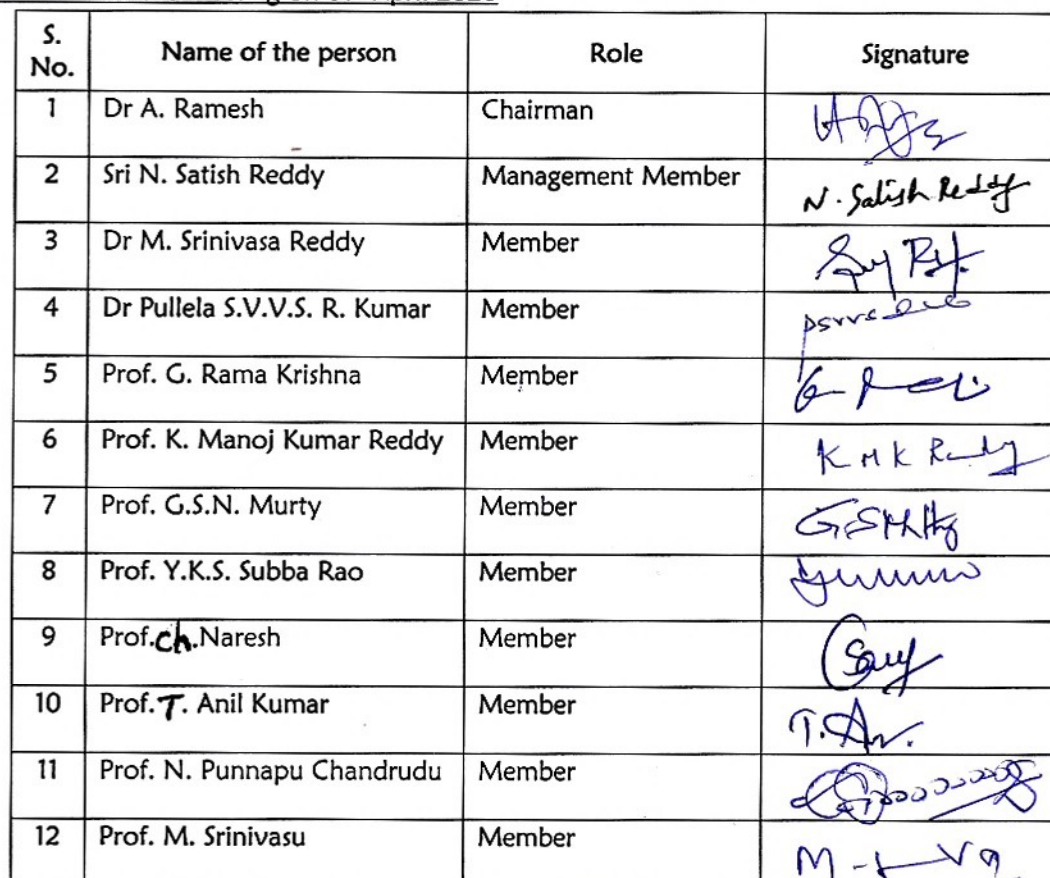 S. No. Name of the person Role Signature
1 Dr A. Ramesh Chairman
2 Sri N. Satish Reddy Management Member N. Satish Reddy
3 Dr M. Srinivasa Reddy Member
4 Dr Pullela S.V.V.S. R. Kumar Member
5 Prof. G. Rama Krishna Member
6 Prof. K. Manoj Kumar Reddy Member K M K Reddy
7 Prof. G.S.N. Murty Member
8 Prof. Y.K.S. Subba Rao Member
9 Prof.ch.Naresh Member
10 Prof.T. Anil Kumar Member
11 Prof. N. Punnapu Chandrudu Member
12 Prof. M. Srinivasu Member